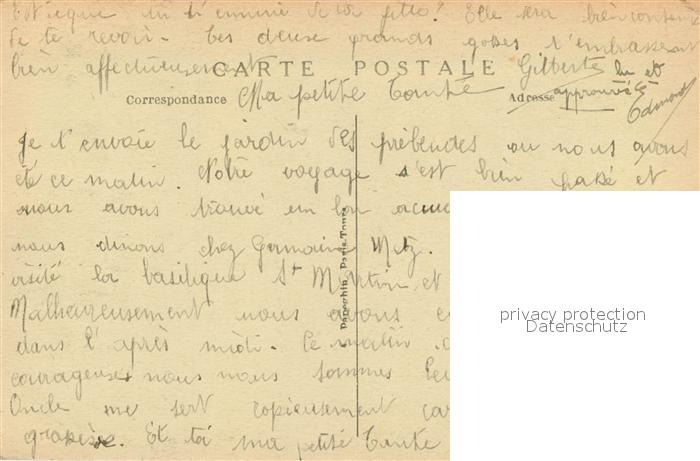 Est-ce que tu t'ennuie de ta fille? Elle sera bien contente
de te revoir. Tes deux grands gosses t'embrassent
bien affectueusement
CARTE POSTALE
Gilberte
lu et
approuvé
Edmond
Correspondance
Adresse
Ma petite Tante
Je t'envoie le jardin des prébendes ou nous avons
été ce matin. Notre voyage s'est bien passé et
nous avons trouvé un bon
nous dinons chez Germaine Metz.
visité la basilique St Martin, et
Malheureusement nous avons
dans l'après midi. Ce matin
courageuses nous nous sommes
Oncle me sert copieusement car
Et toi ma petite Tante
Paris-Tours
privacy protection
Datenschutz